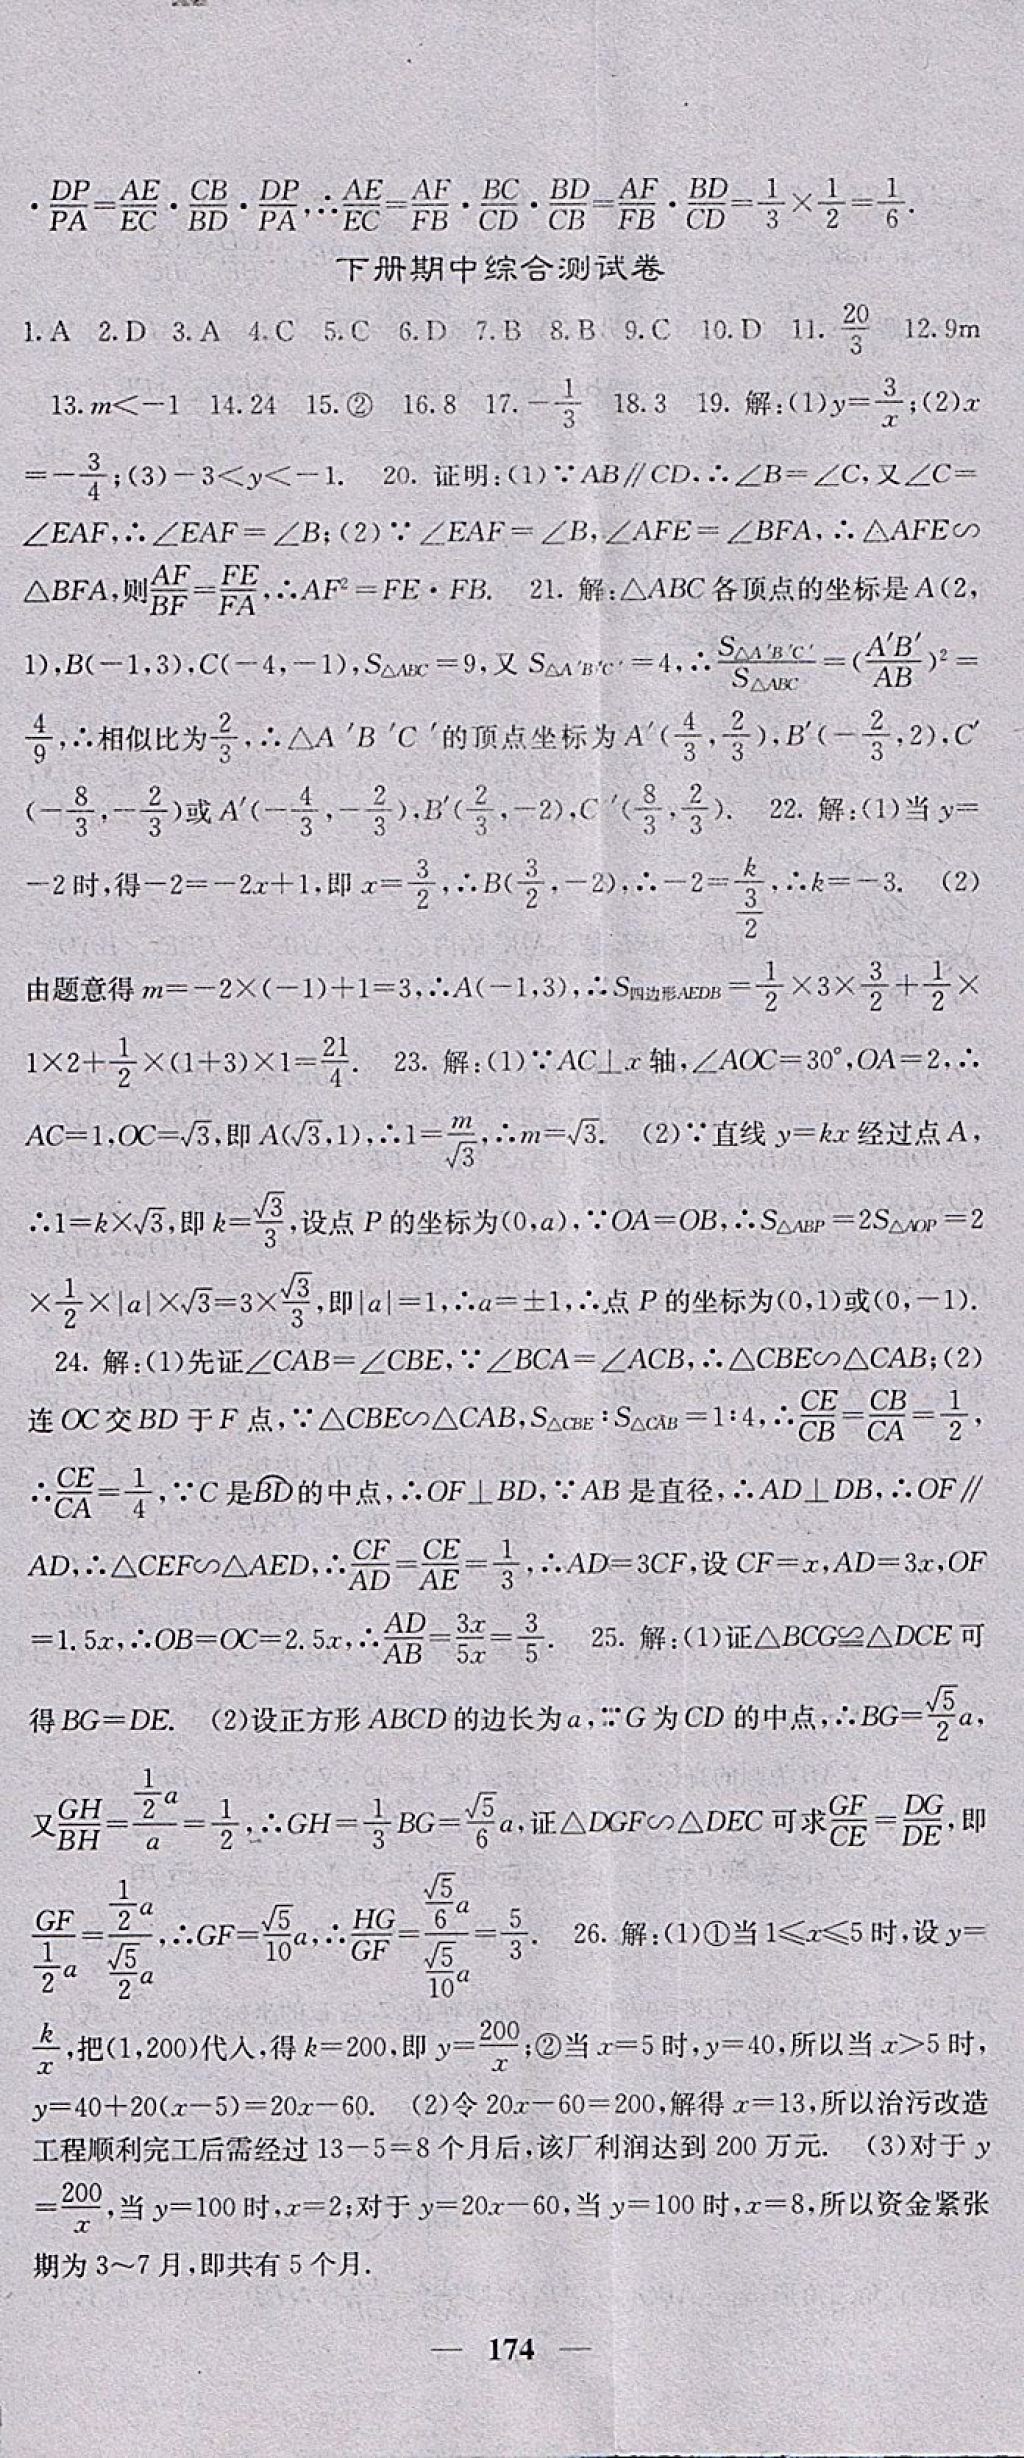 ·DP/PA=AE/EC·CB/BD·DP/PA,∴AE/EC=AF/FB·BC/CD·BD/CB=AF/FB·BD/CD=1/3×1/2=1/6.
下册期中综合测试卷
1.A 2.D 3.A 4.C 5.C 6.D 7.B 8.B 9.C 10.D 11. 20/3 12.9m
13.m<-1 14.24 15.② 16.8 17.-1/3 18.3 19. 解:(1)y=3/x;(2)x
=-3/4;(3)-3<y<-1. 20. 证明:(1)∵AB∥CD,∴∠B=∠C,又∠C=
∠EAF,∴∠EAF=∠B;(2)∵∠EAF=∠B,∠AFE=∠BFA,∴△AFE∽
△BFA,则AF/BF=FE/FA,∴AF²=FE·FB. 21. 解:△ABC各顶点的坐标是A(2,
1),B(-1,3),C(-4,-1),S△ABC=9,又S△A′B′C′=4,∴S△A′B′C′/S△ABC=(A′B′/AB)²=
4/9,∴相似比为2/3,∴△A′B′C′的顶点坐标为A′(4/3,2/3),B′(-2/3,2),C′
(-8/3,-2/3)或A′(-4/3,-2/3),B′(2/3,-2),C′(8/3,2/3). 22. 解:(1)当y=
-2时,得-2=-2x+1,即x=3/2,∴B(3/2,-2),∴-2=k/(3/2),∴k=-3. (2)
由题意得m=-2×(-1)+1=3,∴A(-1,3),∴S四边形AEDB=1/2×3×3/2+1/2×
1×2+1/2×(1+3)×1=21/4. 23. 解:(1)∵AC⊥x轴,∠AOC=30°,OA=2,∴
AC=1,OC=√3,即A(√3,1),∴1=m/√3,∴m=√3. (2)∵直线y=kx经过点A,
∴1=k×√3,即k=√3/3,设点P的坐标为(0,a),∵OA=OB,∴S△ABP=2S△AOP=2
×1/2×|a|×√3=3×√3/3,即|a|=1,∴a=±1,∴点P的坐标为(0,1)或(0,-1).
24. 解:(1)先证∠CAB=∠CBE,∵∠BCA=∠ACB,∴△CBE∽△CAB;(2)
连OC交BD于F点,∵△CBE∽△CAB,S△CBE∶S△CAB=1∶4,∴CE/CB=CB/CA=1/2,
∴CE/CA=1/4,∵C是BD⌒的中点,∴OF⊥BD,∵AB是直径,∴AD⊥DB,∴OF∥
AD,∴△CEF∽△AED,∴CF/AD=CE/AE=1/3,∴AD=3CF,设CF=x,AD=3x,OF
=1.5x,∴OB=OC=2.5x,∴AD/AB=3x/5x=3/5. 25. 解:(1)证△BCG≌△DCE可
得BG=DE. (2)设正方形ABCD的边长为a,∵G为CD的中点,∴BG=√5/2a,
又GH/BH=(1/2a)/a=1/2,∴GH=1/3BG=√5/6a,证△DGF∽△DEC可求GF/CE=DG/DE,即
GF/(1/2a)=(1/2a)/(√5/2a),∴GF=√5/10a,∴HG/GF=(√5/6a)/(√5/10a)=5/3. 26. 解:(1)①当1≤x≤5时,设y=
k/x,把(1,200)代入,得k=200,即y=200/x;②当x=5时,y=40,所以当x>5时,
y=40+20(x-5)=20x-60. (2)令20x-60=200,解得x=13,所以治污改造
工程顺利完工后需经过13-5=8个月后,该厂利润达到200万元. (3)对于y
=200/x,当y=100时,x=2;对于y=20x-60,当y=100时,x=8,所以资金紧张
期为3~7月,即共有5个月.
— 174 —